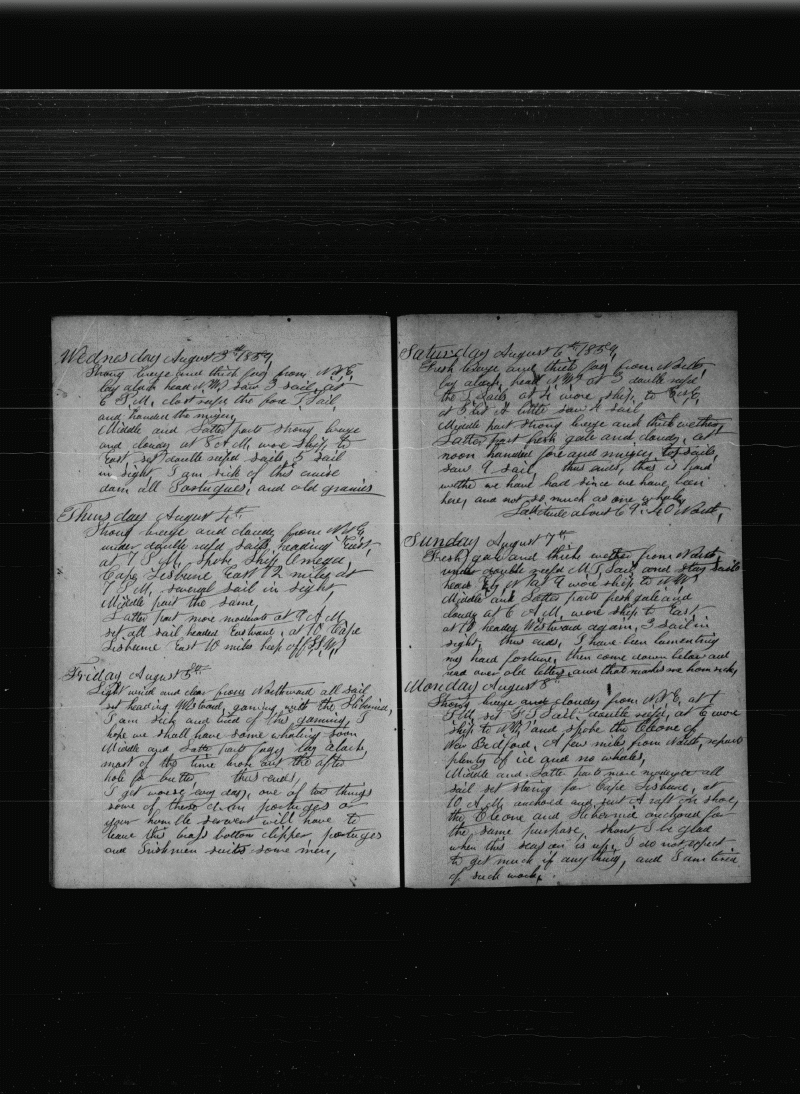 Wednesday August 3rd 1859,
Strong breeze and thick fog from N.E,
lay aback head N.W, saw 3 sail, at
6 P.M, close reefed the fore T, Sail,
and handed the mizen,
Middle and Latter parts strong breeze
and cloudy at 8 A.M, wore ship to
East, set double reefd sails, 5 sail
in sight, I am sick of this cruise
dam all Portugues, and old grannies
Thursday August 4th
Strong breeze and cloudy from N.N.E,
under double reefd sails, heading East,
at 7 P.M, spoke Ship Omega,
Cape Lisburne East 12 miles at
7 P.M, several sail in sight,
Middle part the same,
Latter part more moderate at 9 A.M,
set all sail headed Eastward, at 10 Cape
Lisburne East 10 miles keep off S.S.W,
Friday August 5th
Light wind and clear from Northward all sail
set heading Westward, gaming with the Hibernia,
I am sick and tired of this gaming, I
hope we shall have some whaling soon
Middle and Latter parts foggy lay aback,
most of the time broke out the after
hole for butter, thus ends,
I get worse evry day, one of two things
some of these dam portuges or
your humble servent will have to
leave this brass bottom clipper, portuges
and Irishmen suits some men,
Saturday August 6th 1859,
Fresh breeze and thick fog from North,
lay aback, head N.W, at 3 double reefd
the T, Sails at 4 wore ship to E.N.E,
at 5 saw 4 sail
Myddle part strong breeze and thick wether,
Latter part fresh gale and cloudy, at
noon handed fore and mizen top sails,
saw 9 sail, thus ends, this is hard
wether we have had since we have been
here, and not so much as one whale,
Latitude about 69..40 North,
Sunday August 7th
Fresh gale and thick wether from North
under double reefd M, T, Sail and stay sails
head wore ship to N.W,
Middle and Latter parts fresh gale and
cloudy at 6 A.M, wore ship to East
at 10 headed Westward again, 3 sail in
sight, thus ends, I have been lamenting
my hard fortune, then come down below and
read over old letters, and that makes me home sick,
Monday August 8th
Strong breeze and cloudy from N.N.E, at 1
P.M, set F, T, Sail, double reefd, at 6 wore
ship to N.W, and spoke the Cleone of
New Bedford, A few miles from North, repairs
plenty of ice and no whales,
Middle and Latter parts more moderate all
sail set steering for Cape Lisburne, at
10 A.M, anchored and sent A raft on shore,
the Cleone and Hibernia anchored for
the same purpose, shant I be glad
when this season is up, I do not expect
to get much if any thing, and I am tired
of such work,